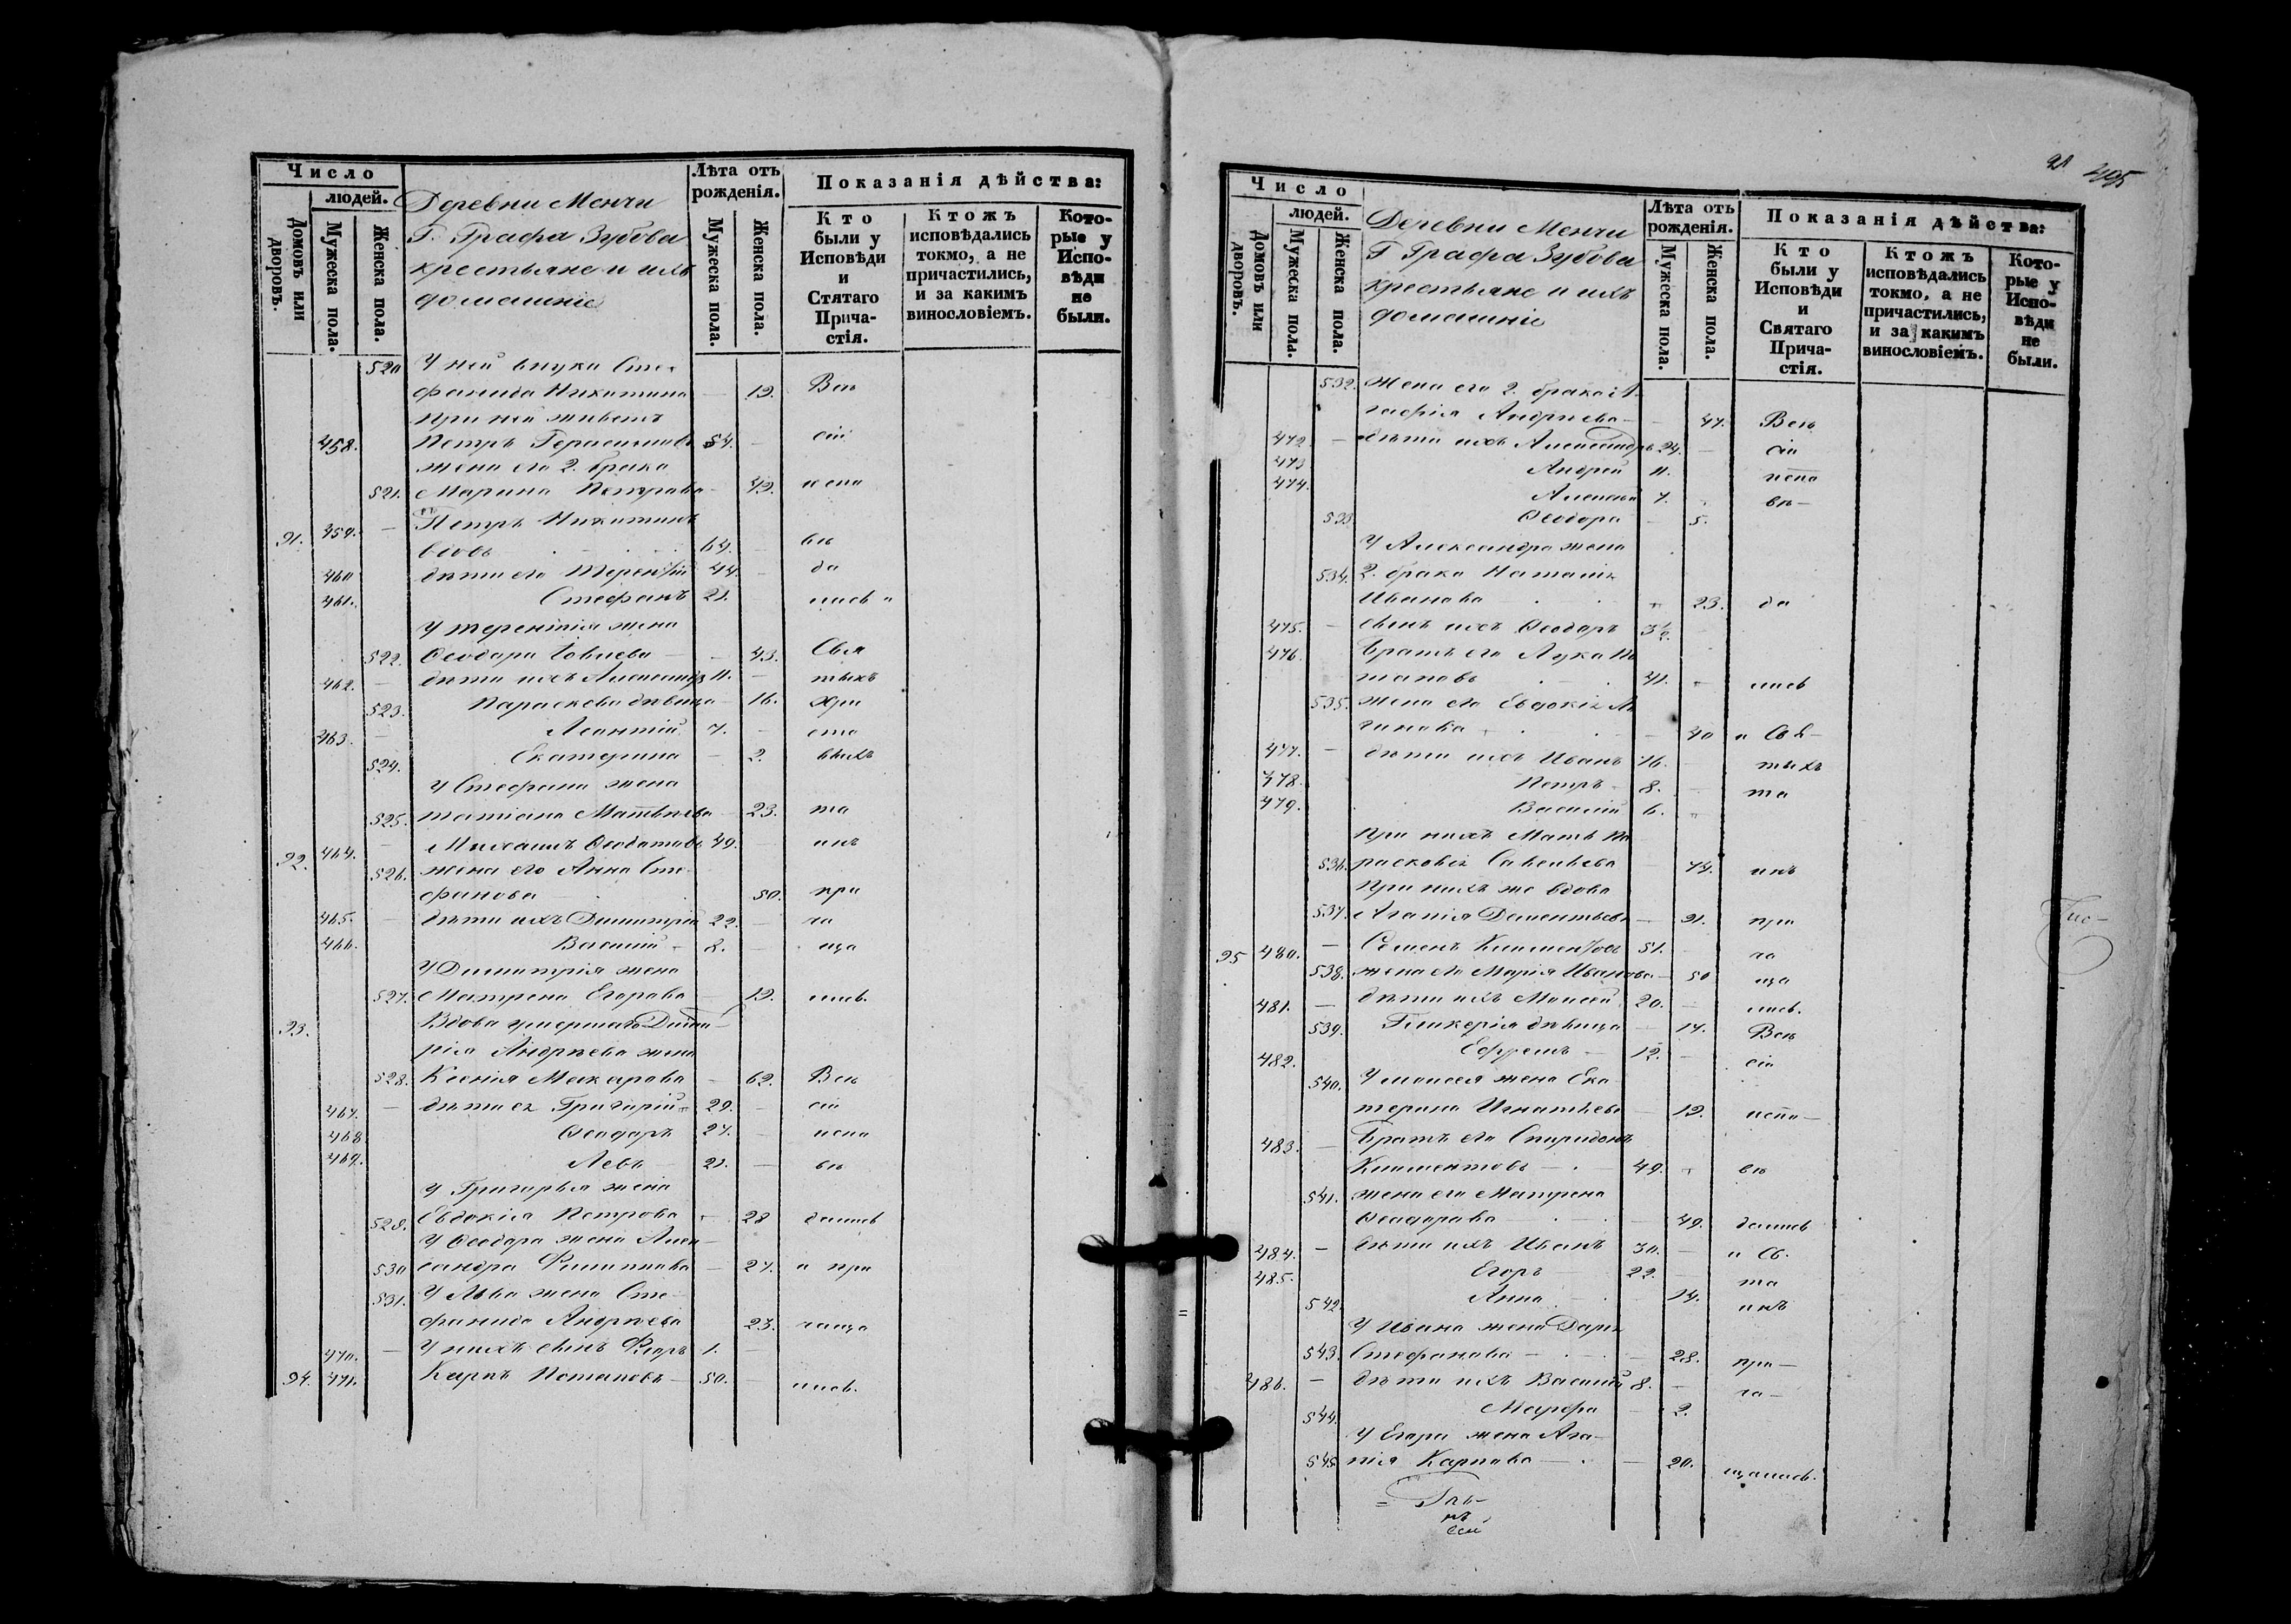 Число
людей.
Домовъ или дворовъ.
Мужеска пола.
Женска пола.
Деревни Менчи
Г. Графа Зубова
крестьяне и ихъ
домашніе
Лѣта отъ рожденія.
Мужеска пола.
Женска пола.
Показанія дѣйства:
Кто были у Исповѣди и Стятаго Прича-стія.
Ктожъ исповѣдались токмо, а не причастились, и за какимъ винословіемъ.
Кото-рые у Испо-вѣди не были.
520 У ней внука Сте-
фанида Никитина — 19. Всѣ
при ней живетъ
458. Петръ Герасимовъ 54. — сіи
жена его 2. брака
521. Марина Петрова — 49. испо
91. 459. — Петръ Никитинъ
вдовъ 64. — вѣ
460 дѣти его Терентій 44. — да
461. Стефанъ 21. лись и
У Терентія жена
522. Ѳеодора — 43. Свя
462. — дѣти ихъ Александръ 11. — тыхъ
523. Параскева дѣвица — 16. Хри
463. — Леонтій 7. — сто
524. Екатерина — 2. выхъ
У Стефана жена
525. Татіана Матвѣева — 23. та
92. 464. — Михаилъ Ѳеодотовъ 49. — инъ
526. жена его Анна Сте-
фанова 50. при
465. — дѣти ихъ Димитрій 22. — ча
466. Василій 8. — ща
У Димитрія жена
527. Матрена Егорова — 19. лись.
93. Вдова умершаго Димит-
рія Андреева жена
528. Ксенія Макарова — 62. Всѣ
467. — дѣти ея Григорій 29. — сіи
468 Ѳеодоръ 27. — испо
469. Левъ 21. — вѣ
У Григорья жена
528. Евдокія Петрова 28 дались
У Ѳеодора жена Алек-
530 сандра Филиппова — 27. и при
531. У Льва жена Сте-
фанида Андреева 23. чаща
470. — У нихъ сынъ Флоръ 1. —
94. 471. Карпъ Потаповъ 50. — лись.
Число
людей.
Домовъ или дворовъ.
Мужеска пола.
Женска пола.
Деревни Менчи
Г Графа Зубова
крестьяне и ихъ
домашніе
Лѣта отъ рожденія.
Мужеска пола.
Женска пола.
Показанія дѣйства:
Кто были у Исповѣди и Святаго Прича-стія.
Ктожъ исповѣдались токмо, а не причастились, и за какимъ винословіемъ.
Кото-рые у Испо-вѣди не были.
532. Жена его 2. брака А-
гафія Андреева — 47. Всѣ
472. — дѣти ихъ Александръ 24. — сіи
473 Андрей 11. испо
474. Алексѣй 7. вѣ —
533 Ѳеодора — 5.
У Александра жена
534. 2. брака Наталія
Иванова 23. да
475. — сынъ ихъ Ѳеодоръ 3½.
476. Братъ его Лука По
таповъ 41. лись
535. жена его Евдокія
— 40 и Свя-
477. — дѣти ихъ Иванъ 16. тыхъ
478. Петръ 8. та
479. Василій 6.
При нихъ Мать Па
536. расковія Савельева — 74. инъ
При нихъ же вдова
537. Агапія Дементьева — 91. при
95 480. — Семенъ Климентовъ 51. — ча
538. жена его Марія Иванова — 50 ща
481. — дѣти ихъ Моисей 20. — лись.
539. Гликерія дѣвица — 17. Всѣ
482. Ефремъ — 12. — сіи
540. У Моисея жена Ека
терина Игнатьева — 19. испо —
483. — Братъ его Спиридонъ
Климентовъ — 49. вѣ
541. жена его Матрена
Ѳеодорова — 49. дались
484. — дѣти ихъ Иванъ 30. — и Св.
485. Егоръ 22. та
542 Анна 14. инъ
У Ивана жена Дарія
543. Стефанова — 28. при —
486. — дѣти ихъ Василій 8. — ча —
544. Марфа — 2.
У Егора жена Ага-
545 пія Карпова — 20. щались.